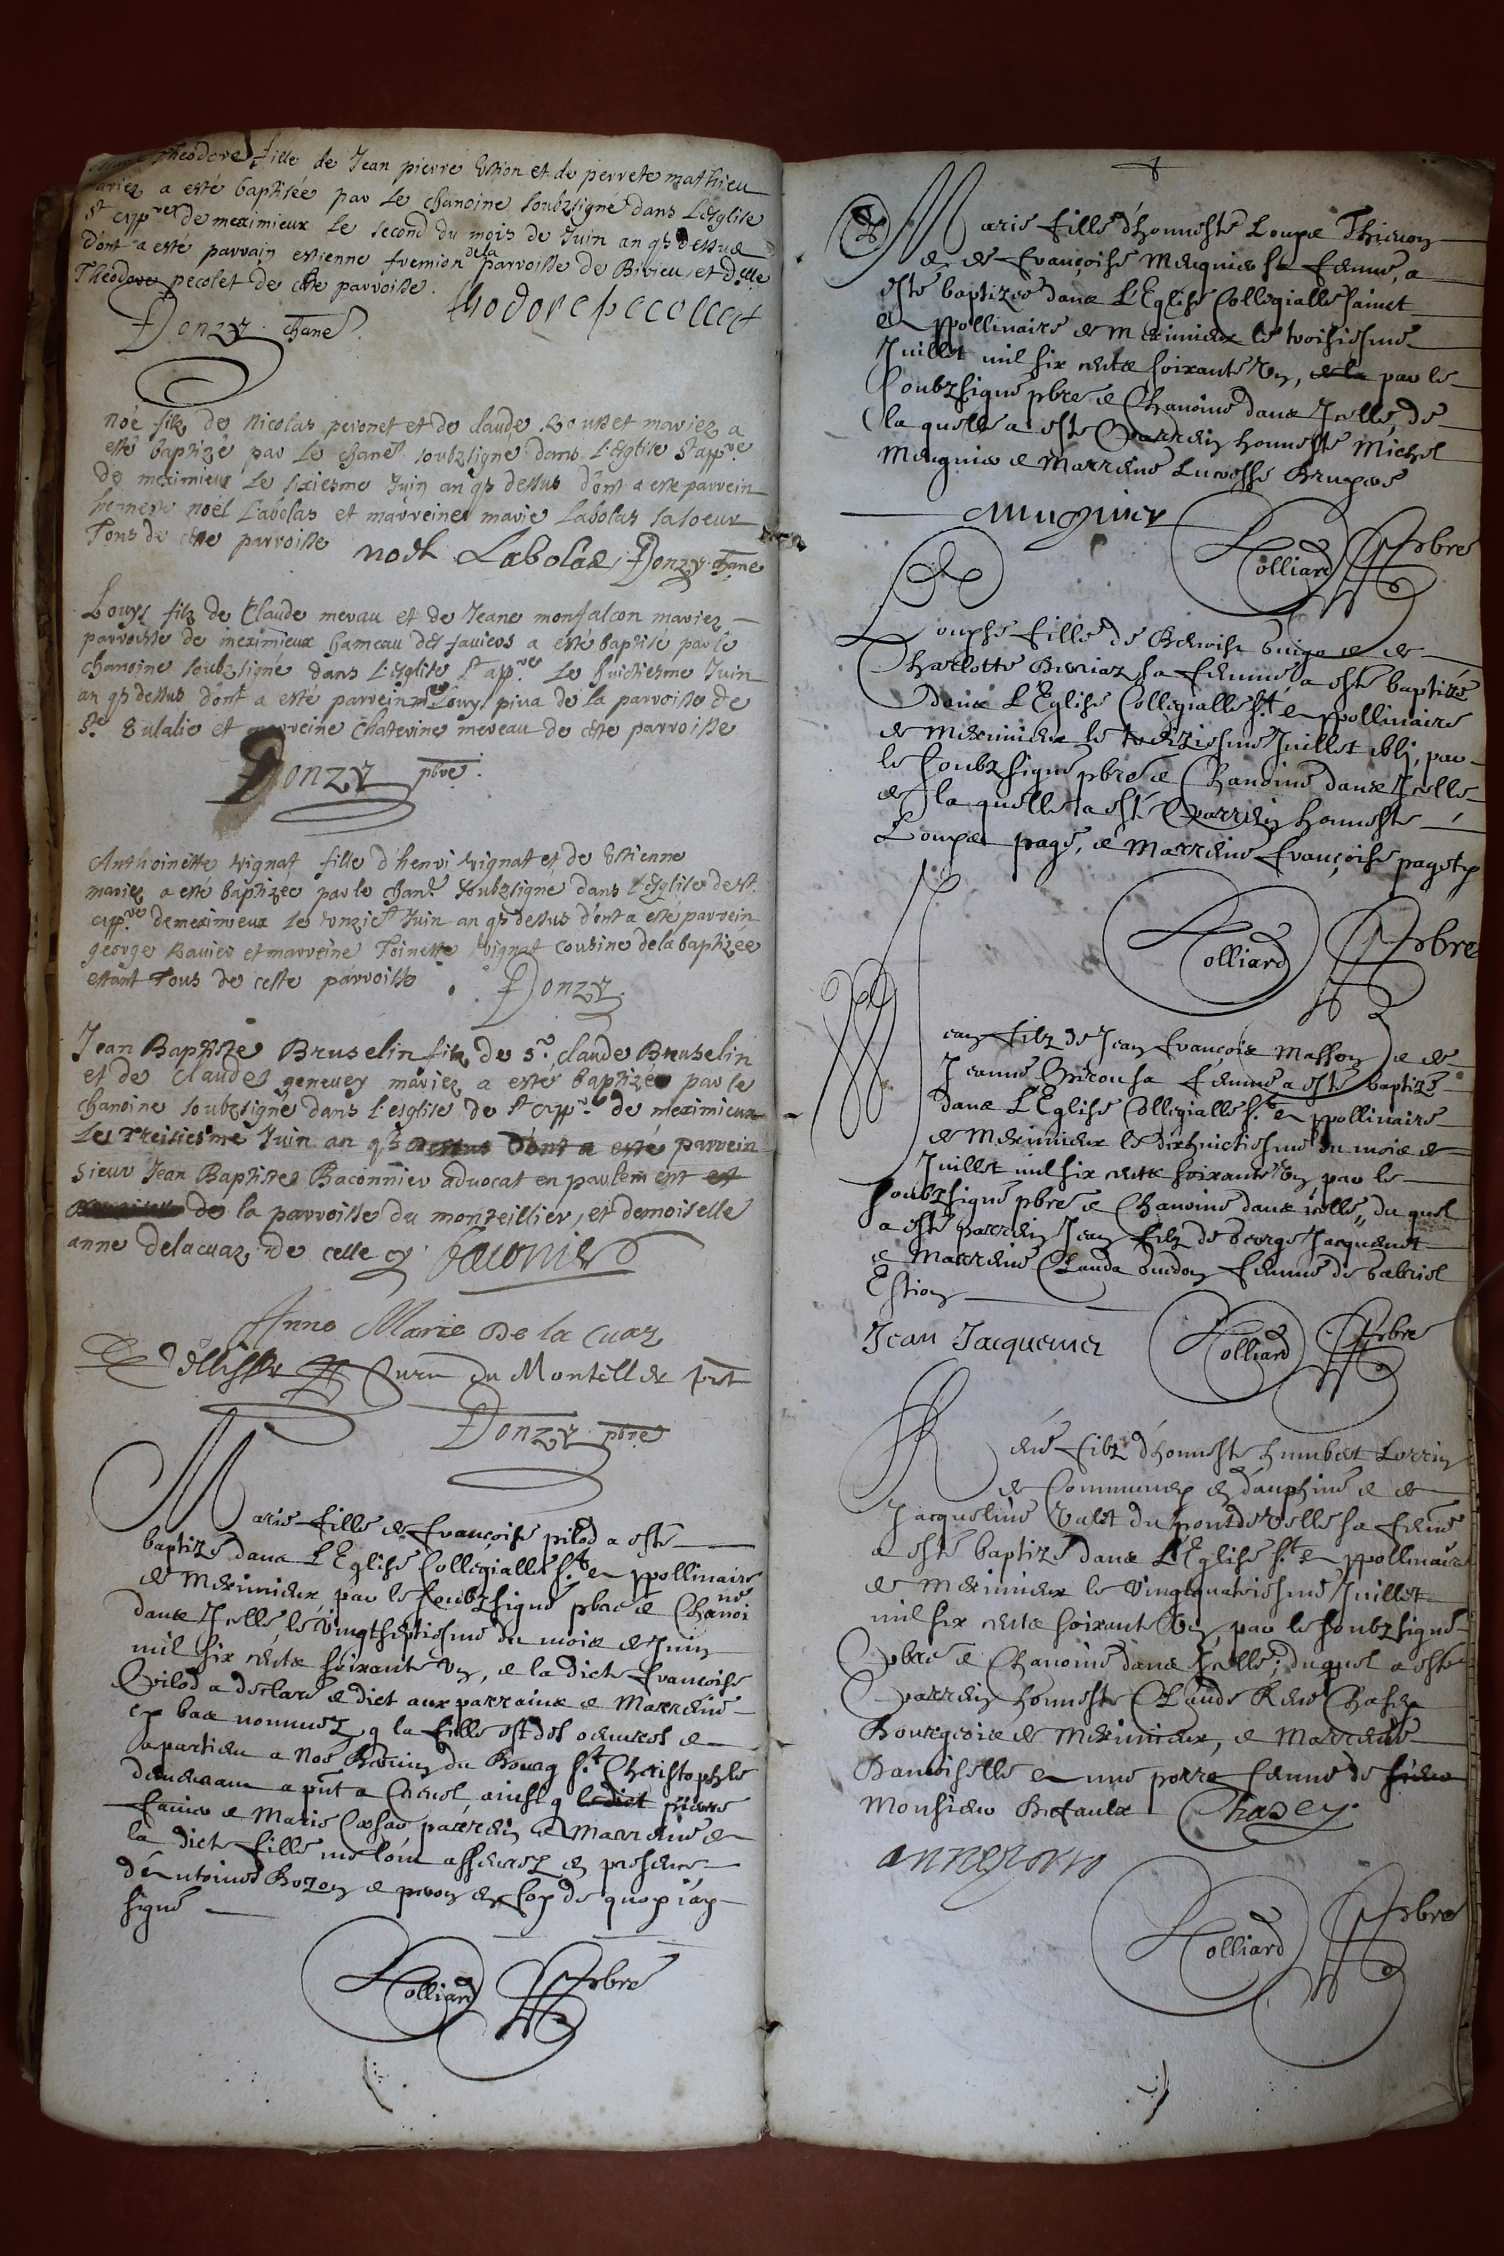 Theodore fille de Jean pierre Estion et de perrete mathieu
mariez a esté baptisée par Le chanoine soubzsigné dans L'esglise
St App.re de meximieux Le second du mois de Juin an qs dessus
dont a esté parrain estienne fremion de la parroisse de Birieu et d.elle
Theodore pecolet de cete parroisse.
Donzy chane
thodore pecollet
Noé filz de Nicolas peronet et de claude mariez a
esté baptizé par Le chane soubzsigné dans L'esglise St app.re
de meximieux Le sixiesme Juin an qs dessus dont a esté parrein
honneste noel Labolas et marreine marie Labolas sa soeur
Tous de cete parroisse
noel Labolas Donzy chane
Louys filz de Claude merau et de Jeane monfalcon mariez
parroisse de meximieux hameau des faviers a esté baptisé par le
chanoine soubzsigné dans L'esglise St app.re Le huictiesme Juin
an qs dessus dont a esté parrein Louys piua de la parroisse de
Ste Eulalie et marreine Chaterine mereau de cete parroisse
Donzy pbre.
Anthoinette vignat fille d'henri vignat et de Estienne
mariez a esté baptizée par le chane soubzsigné dans L'esglise de St
app.re de meximieux Le unzie Juin an qs dessus dont a esté parrein
george Bauier et marreine Toinette vignat cousine de la baptizée
estant Tous de ceste parroisse
Donzy.
Jean Baptiste Bruselin filz de Sr claude Bruselin
et de Claude geneuey mariez a esté baptizé par le
chanoine soubzsigné dans l'esglise de St App.re de meximieux
Le Treisiesme Juin an qs dessus dont a esté parrein
Sieur Jean Baptiste Baconnier advocat en parlement et
de la parroisse du montellier, et demoiselle
anne delacuaz de celle cy
Baconier
Anne Marie De la Cuaz
Curé du Montellier pnt
Donzy pbre
Marie fille de Françoise pilod a esté
baptizé dans L'Eglise Collegialle St Appollinaire
de Meximieux, par le soubzsigné pbre & Chanoine
dans Icelle, le vingtseptiesme du mois de Juin
mil six cents soixante Un, & la dicte Françoise
Pilod a declaré & dict aux parrains & Marreine
cy bas nommez q la fille est des oeuvres &
apartien a Noé du Bourg St Christophle
demeurant a pnt a ainsi q le dict pierre
favier & Marie parrein & Marreine de
la dicte fille me l'ont asseurez en presence
d'Antoine Bozon & de quoy i'ay
signé
Colliard Pbre
Marie fille d'honneste Loupe Thieuon
& de Françoise Meugnier sa femme, a
esté baptizée dans L'Eglise Collegialle Sainct
Appollinaire de Meximieux le troisiesme
Juillet mil six cents soixante Un, de la par le
soubzsigné pbre & Chanoine dans Icelle, de
la quelle a esté Parrein honneste Michel
Meugnier & Marreine Lucresse Bruyere
Mugnier
Colliard Pbre
Louyse fille de Benoist & de
Charlotte sa femme, a esté baptizée
dans L'Eglise Collegialle St Appollinaire
de Meximieux le treiziesme Juillet 1661, par
le soubzsigné pbre & Chanoine dans Icelle
de la quelle a esté Parrein honneste
Loupe page, & Marreine Françoise
Colliard Pbre
Jean filz de Jean François Masson & de
Jeanne sa femme a esté baptizé
dans L'Eglise Collegialle St Appollinaire
de Meximieux le dixhuictiesme du mois de
Juillet mil six cents soixante Un par le
soubzsigné pbre & Chanoine dans icelle, du quel
a esté parrein Jean filz de George Jacquemet
& Marreine Clauda femme de Gabriel
Estion
Jean Jacquemet
Colliard Pbre
René filz d'honneste humbert Lorrin
de Communey en dauphiné & de
Jacqueline Valet du pont de Velle sa femme
a esté baptizé dans L'Eglise St Appollinaire
de Meximieux le Vingtquatriesme Juillet
mil six cents soixante Un, par le soubzsigné
Pbre & Chanoine dans Icelle, duquel a esté
Parrein honneste Claude René Chasey
Bourgeois de Meximieux, & Marreine
Damoiselle Anne porro femme de sieur
Monsieur Chasey
anne porro
Colliard Pbre